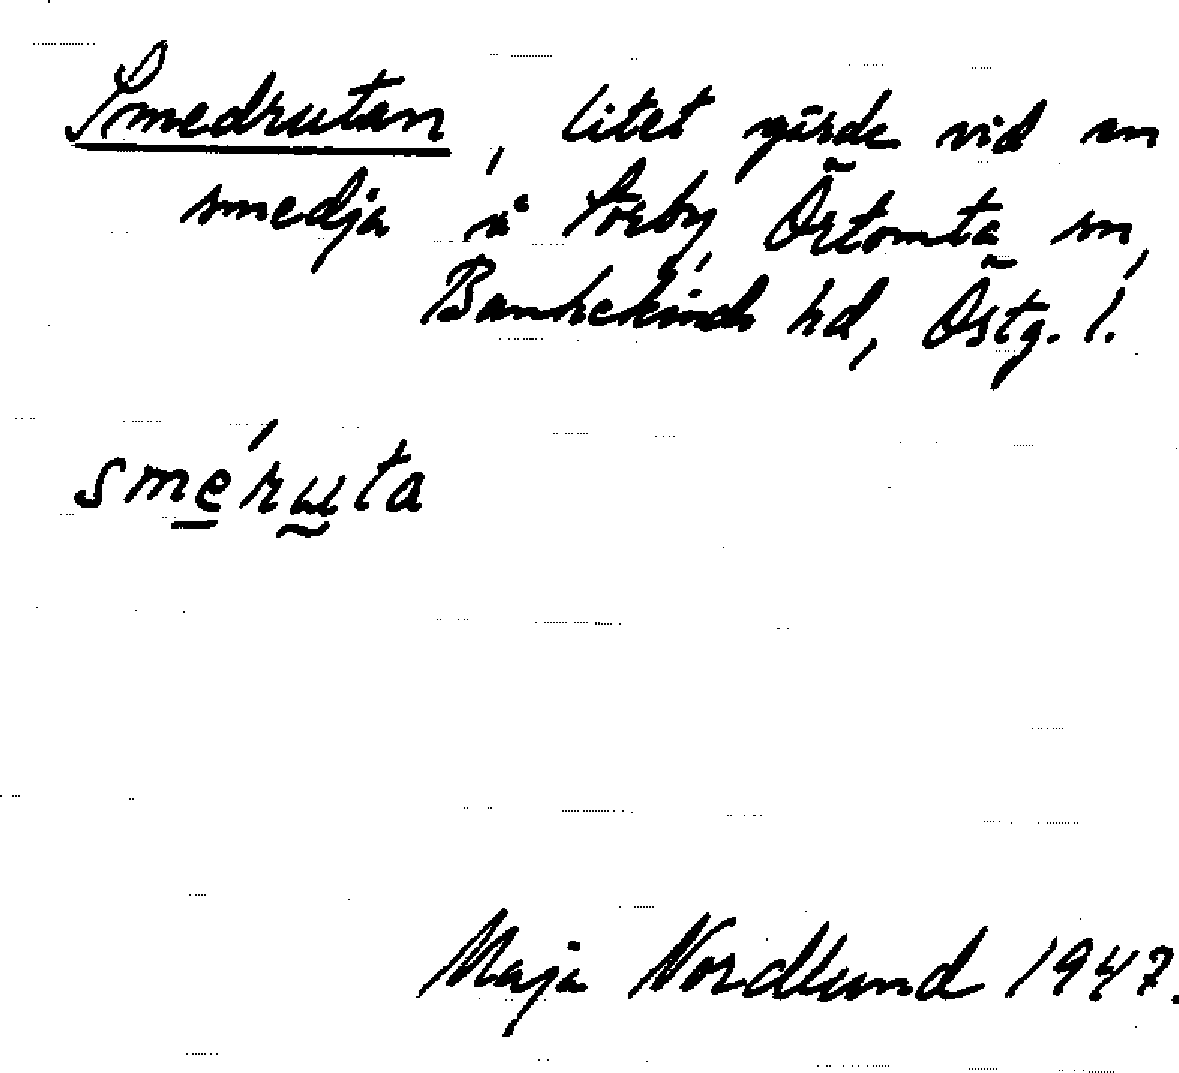 Smedrutan, litet gärde vid en
smedja å Torby, Örtomta sn,
Bankekinds hd, Östg. l.
smérụta
Maja Nordlund 1947.